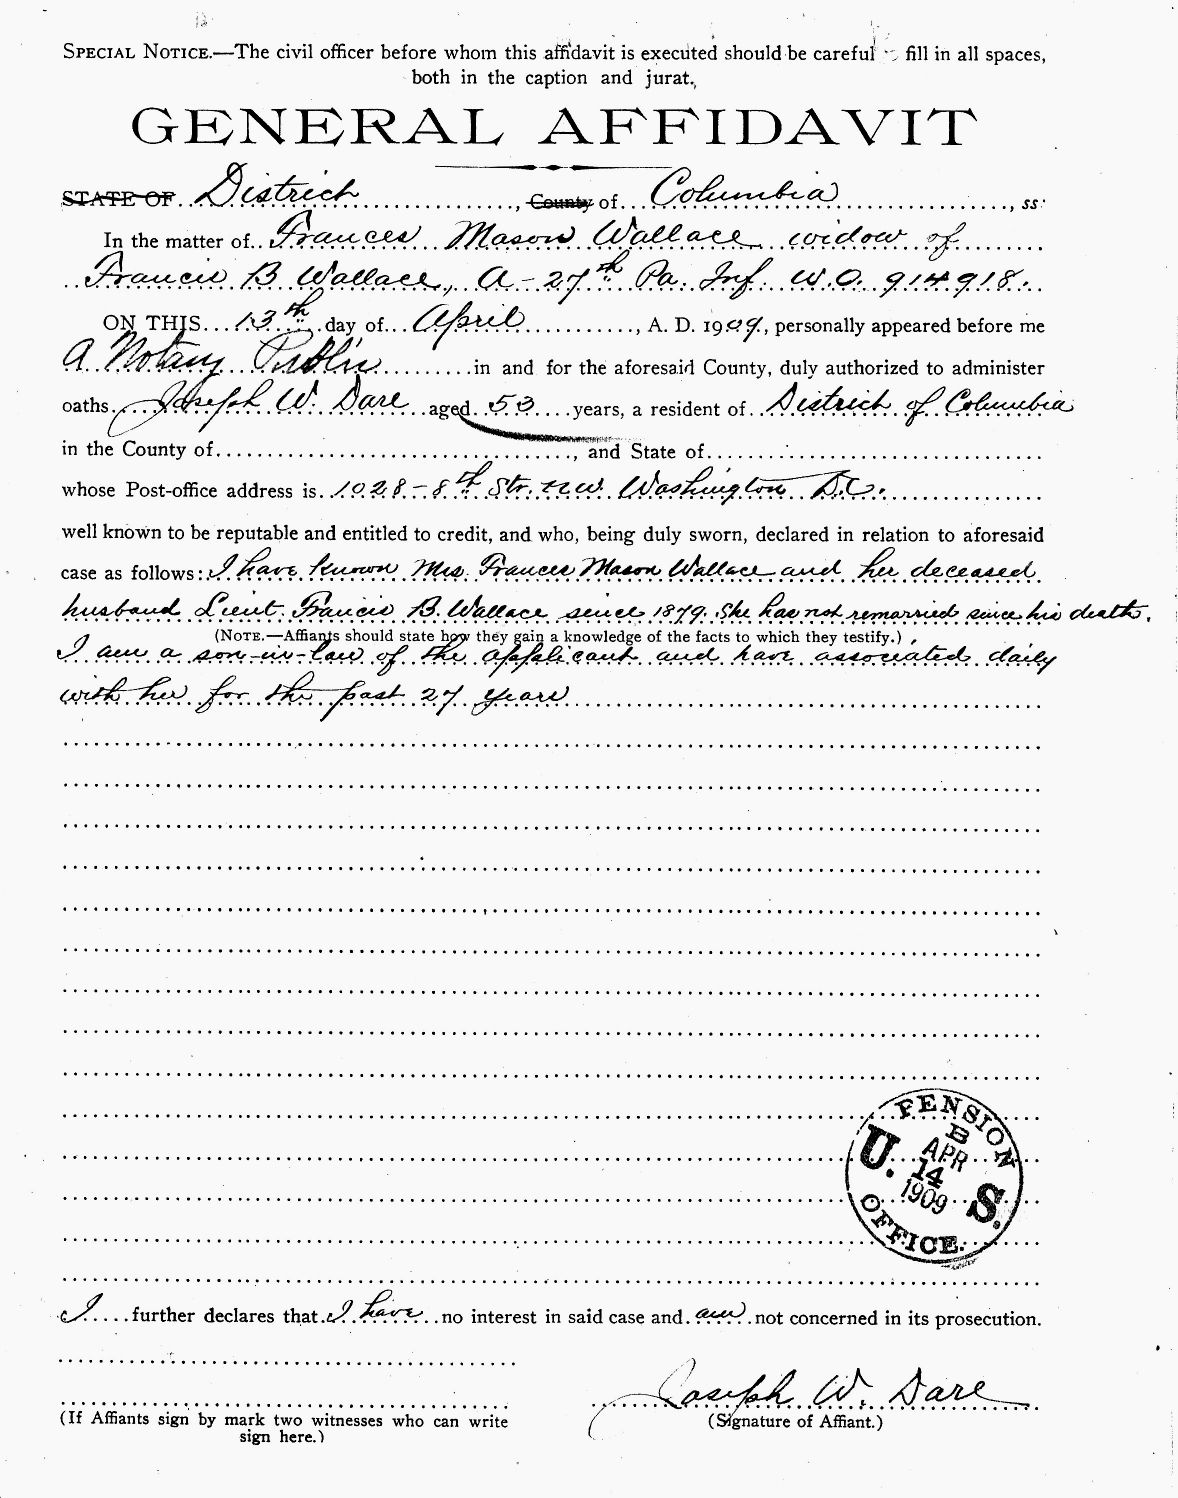 SPECIAL NOTICE.—The civil officer before whom this affidavit is executed should be careful fill in all spaces,
both in the caption and jurat.
GENERAL AFFIDAVIT
STATE OF District, County of Columbia, ss:
In the matter of Frances Mason Wallace widow of
Francis B Wallace, A - 27th Pa. Inf. W.O. 914918.
ON THIS 13th day of April, A. D. 1909, personally appeared before me
A Notary Public in and for the aforesaid County, duly authorized to administer
oaths Joseph W. Dare aged 53 years, a resident of District of Columbia
in the County of, and State of
whose Post-office address is 1028 - 8th Str. n.w. Washington D.C.
well known to be reputable and entitled to credit, and who, being duly sworn, declared in relation to aforesaid
case as follows: I have known Mrs. Frances Mason Wallace and her deceased
husband Lieut. Francis B. Wallace since 1879. She has not remarried since his death.
(NOTE.—Affiants should state how they gain a knowledge of the facts to which they testify.)
I am a son-in-law of the applicant and have associated daily
with her for the past 27 years
U. S. PENSION OFFICE.
B
APR
14
1909
I further declares that I have no interest in said case and am not concerned in its prosecution.
Joseph W. Dare
(If Affiants sign by mark two witnesses who can write
sign here.)
(Signature of Affiant.)